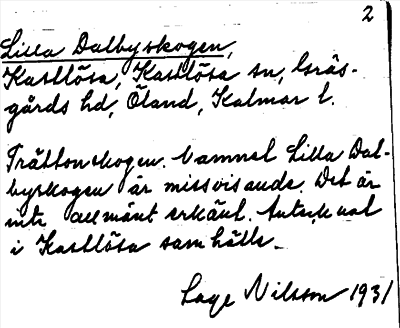 2
Lilla Dalbyskogen,
Kastlösa, Kastlösa sn, Gräs-
gårds hd, Öland, Kalmar l.
skogen. Namnet Lilla Dal-
byskogen är missvisande. Det är
inte allmänt erkänt.
i Kastlösa samhälle.
Lage Nilsson 1931